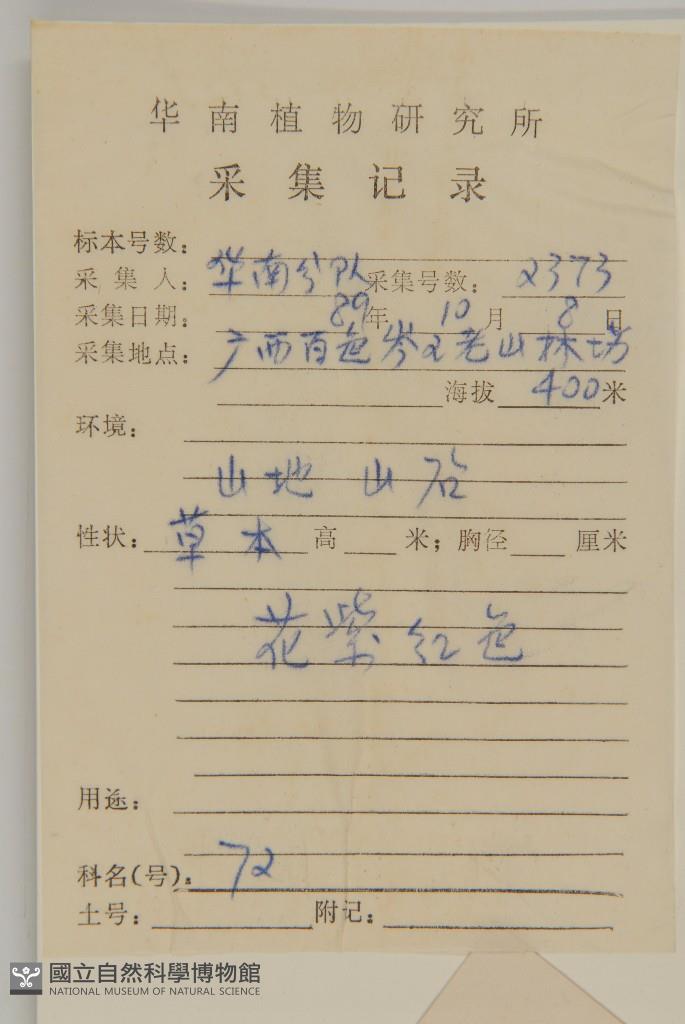 华南植物研究所
采集记录
标本号数:
采集人: 华南分队 采集号数: 2373
采集日期: 89年 10月 8日
采集地点: 广西百色岑王老山林场
海拔 400米
环境:
山地 山石
性状: 草本 高 米; 胸径 厘米
花紫红色
用途:
科名(号): 72
土号: 附记:
國立自然科學博物館
NATIONAL MUSEUM OF NATURAL SCIENCE